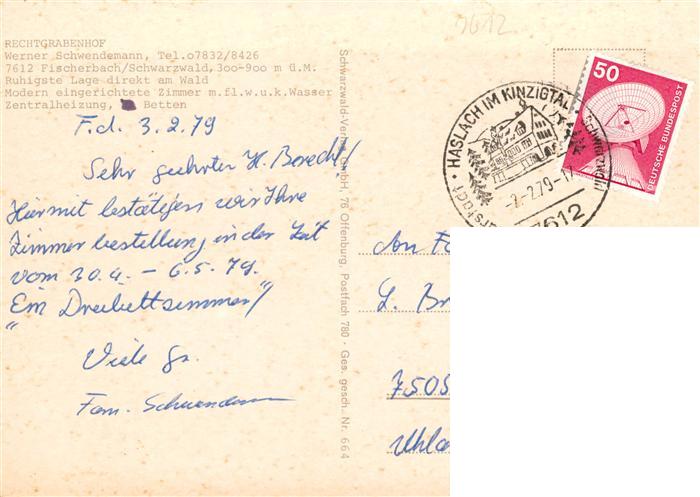 7612
RECHTGRABENHOF
Werner Schwendemann, Tel.o7832/8426
7612 Fischerbach/Schwarzwald,3oo-9oo m ü.M.
Ruhigste Lage direkt am Wald
Modern eingerichtete Zimmer m.fl.w.u.k.Wasser
Zentralheizung, Betten
F.d. 3.2.79
Sehr geehrter H. Borecht!
Hiermit bestätigen wir Ihre
Zimmerbestellung in der Zeit
vom 30.4. – 6.5.79.
"Ein Dreibettzimmer"
Viele Gr.
Fam. Schwendemann
Schwarzwald-Verlag GmbH, 76 Offenburg, Postfach 780 · Ges. gesch. Nr. 664
HASLACH IM KINZIGTAL · Schwarzwald
7612
50
DEUTSCHE BUNDESPOST
An Fa
L. Br
7505
Uhla